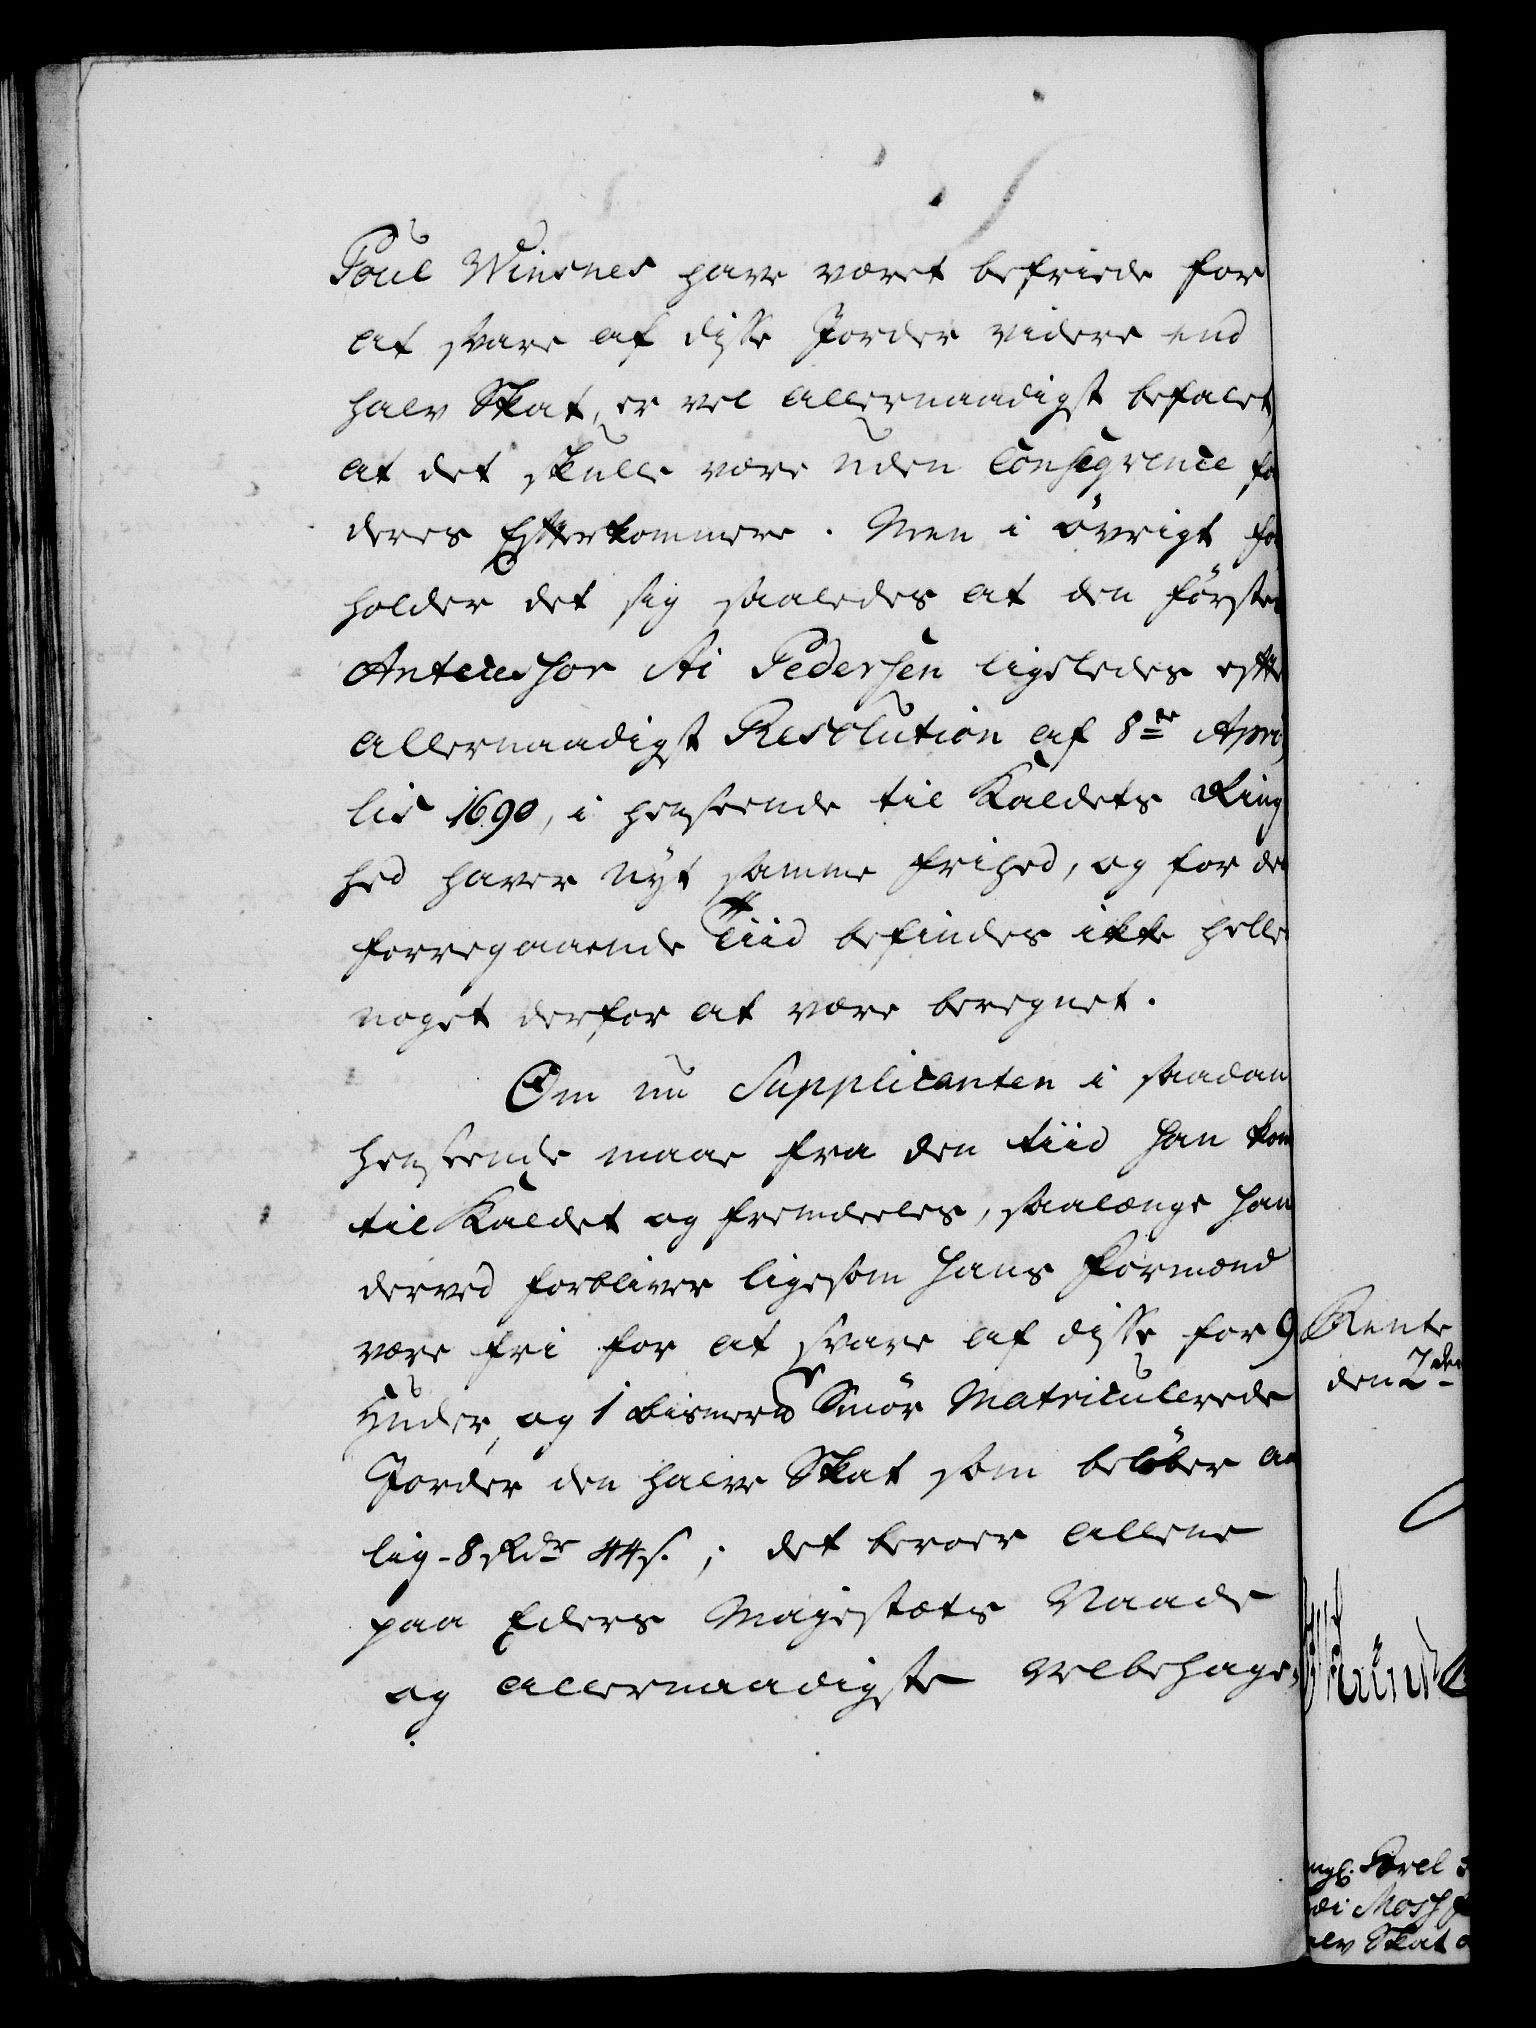 Poul Winsnes have været befriede for
at svare af disse Jorder videre end
halv Skat, er vel allernaadigst befalet,
at det skulle være uden Conseqvence for
deres Efterkommere. Men i övrigt for
holder det sig saaledes at den förste
Antecessor Ai Pedersen ligeledes efter
allernaadigst Resolution af 8de Apri
lis 1690, i henseende til Kaldets Ring
hed haver nyt samme frihed, og for den
forregaaende Tiid befindes ikke heller
noget derfor at være beregnet.
Om nu Supplicanten i saadan
henseende maae fra den tiid han kom
til Kaldet og fremdeeles, saalænge han
derved forbliver ligesom hans Formænd
være fri for at svare af disse for 9
Huder, og 1 Bismerd Smör Matriculerede
Jorder den halve Skat som belöber aar
lig 8 Rdr 44 s.; det beroer allene
paa Eders Majestæts Naade
og allernaadigste Velbehage,
Rente
den 2den
Parel
Moss
Skat